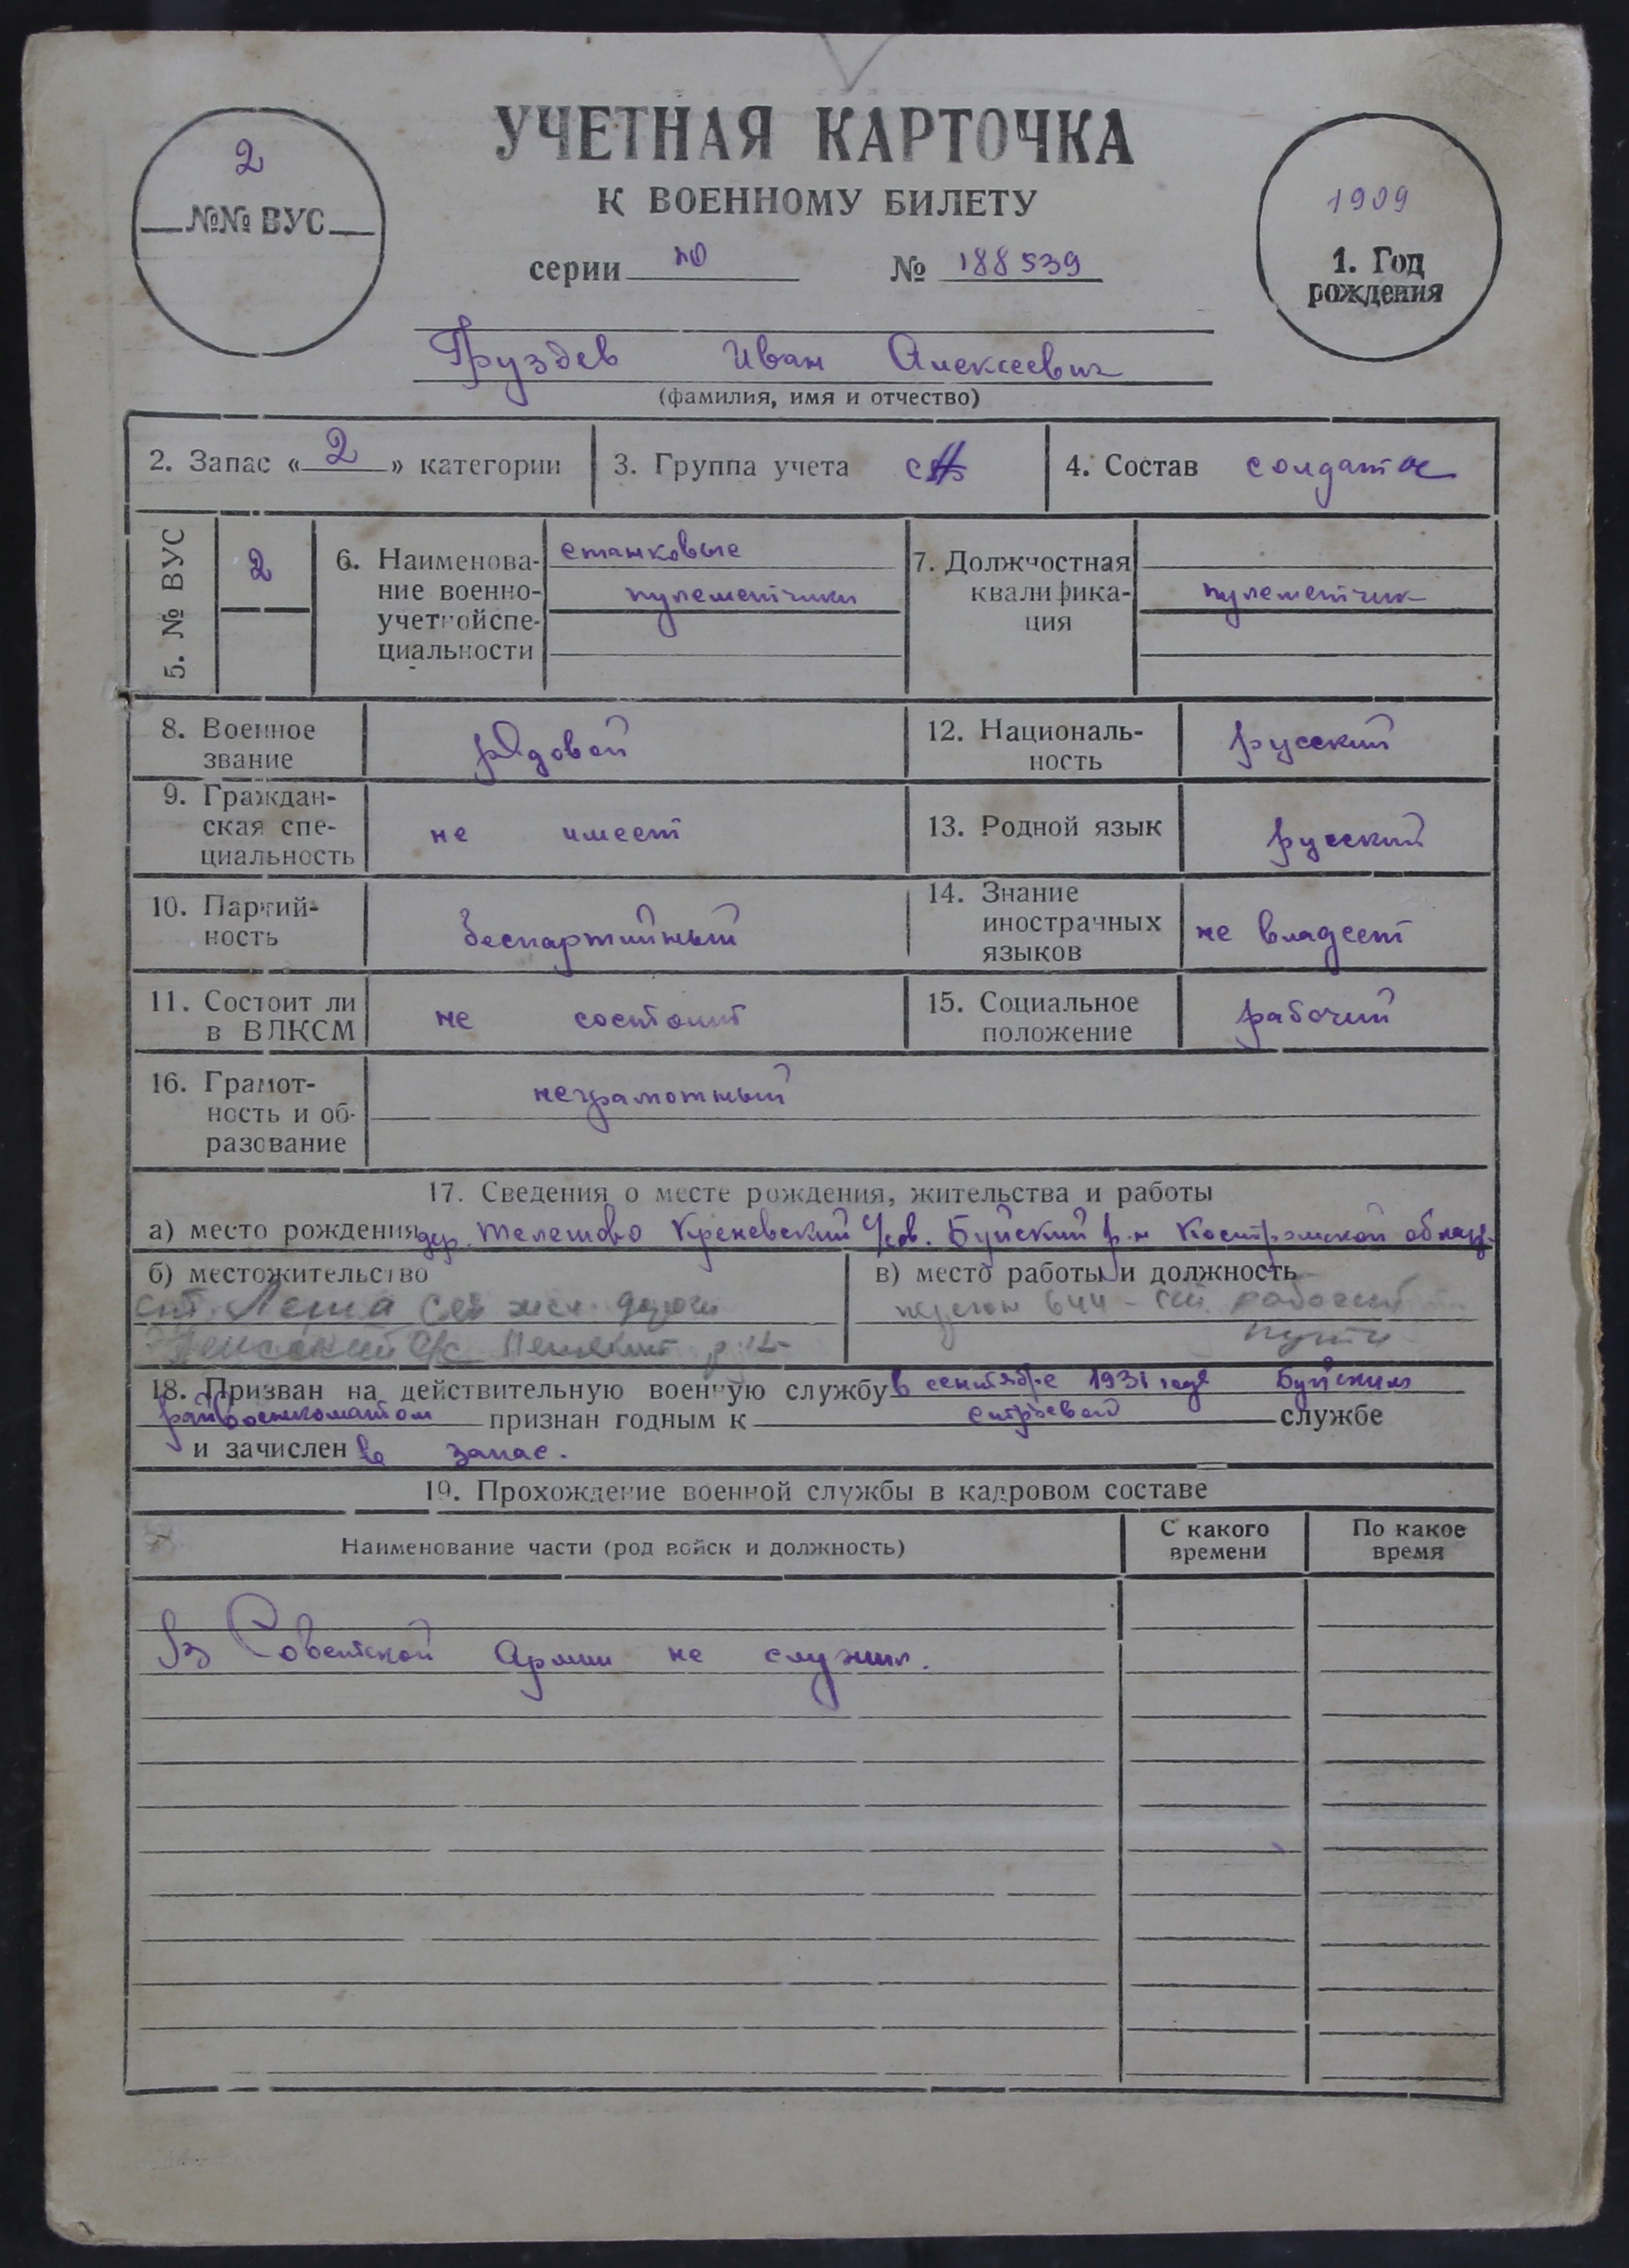 УЧЕТНАЯ КАРТОЧКА
К ВОЕННОМУ БИЛЕТУ
серии Ю № 188539
2
№№ ВУС
1909
1. Год
рождения
Груздев Иван Алексеевич
(фамилия, имя и отчество)
2. Запас « 2 » категории
3. Группа учета СА
4. Состав солдат
5. № ВУС
2
6. Наименова-
ние военно-
учетной спе-
циальности
станковые
пулеметчики
7. Должностная
квалифика-
ция
пулеметчик
8. Военное
звание
рядовой
12. Националь-
ность
русский
9. Граждан-
ская спе-
циальность
не имеет
13. Родной язык
русский
10. Партий-
ность
беспартийный
14. Знание
иностранных
языков
не владеет
11. Состоит ли
в ВЛКСМ
не состоит
15. Социальное
положение
рабочий
16. Грамот-
ность и об-
разование
неграмотный
17. Сведения о месте рождения, жительства и работы
а) место рождения дер. Телешово Креневский с/сов. Буйский р-н Костромской облас.
б) местожительство
ст. Лепша Сев жел. дороги
в) место работы и должность
рабочий
пути
18. Призван на действительную военную службу в сентябре 1931 года Буйским
райвоенкоматом признан годным к строевой службе
и зачислен в запас.
19. Прохождение военной службы в кадровом составе
Наименование части (род войск и должность)
С какого
времени
По какое
время
В Советской Армии не служил.